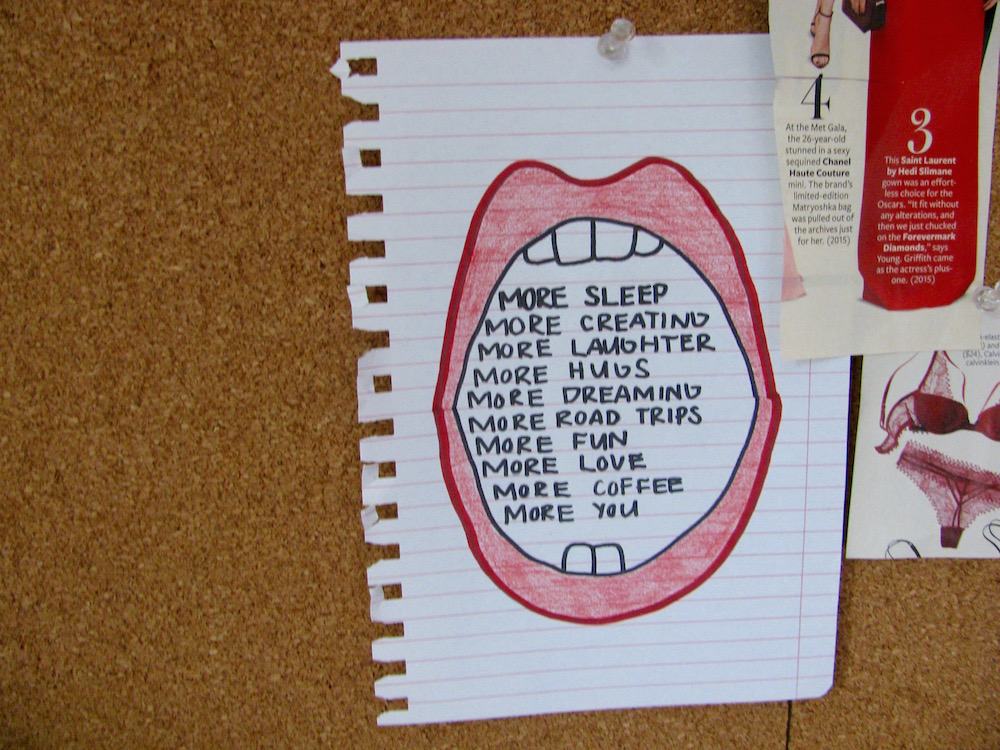 MORE SLEEP
MORE CREATING
MORE LAUGHTER
MORE HUGS
MORE DREAMING
MORE ROAD TRIPS
MORE FUN
MORE LOVE
MORE COFFEE
MORE YOU
4
At the Met Gala,
the 26-year-old
stunned in a sexy
sequined Chanel
Haute Couture
mini. The brand's
limited-edition
Matryoshka bag
was pulled out of
the archives just
for her. (2015)
3
This Saint Laurent
by Hedi Slimane
gown was an effort-
less choice for the
Oscars. "It fit without
any alterations, and
then we just chucked
on the Forevermark
Diamonds," says
Young. Griffith came
as the actress's plus-
one. (2015)
) and
($24), Calv
calvinklein.